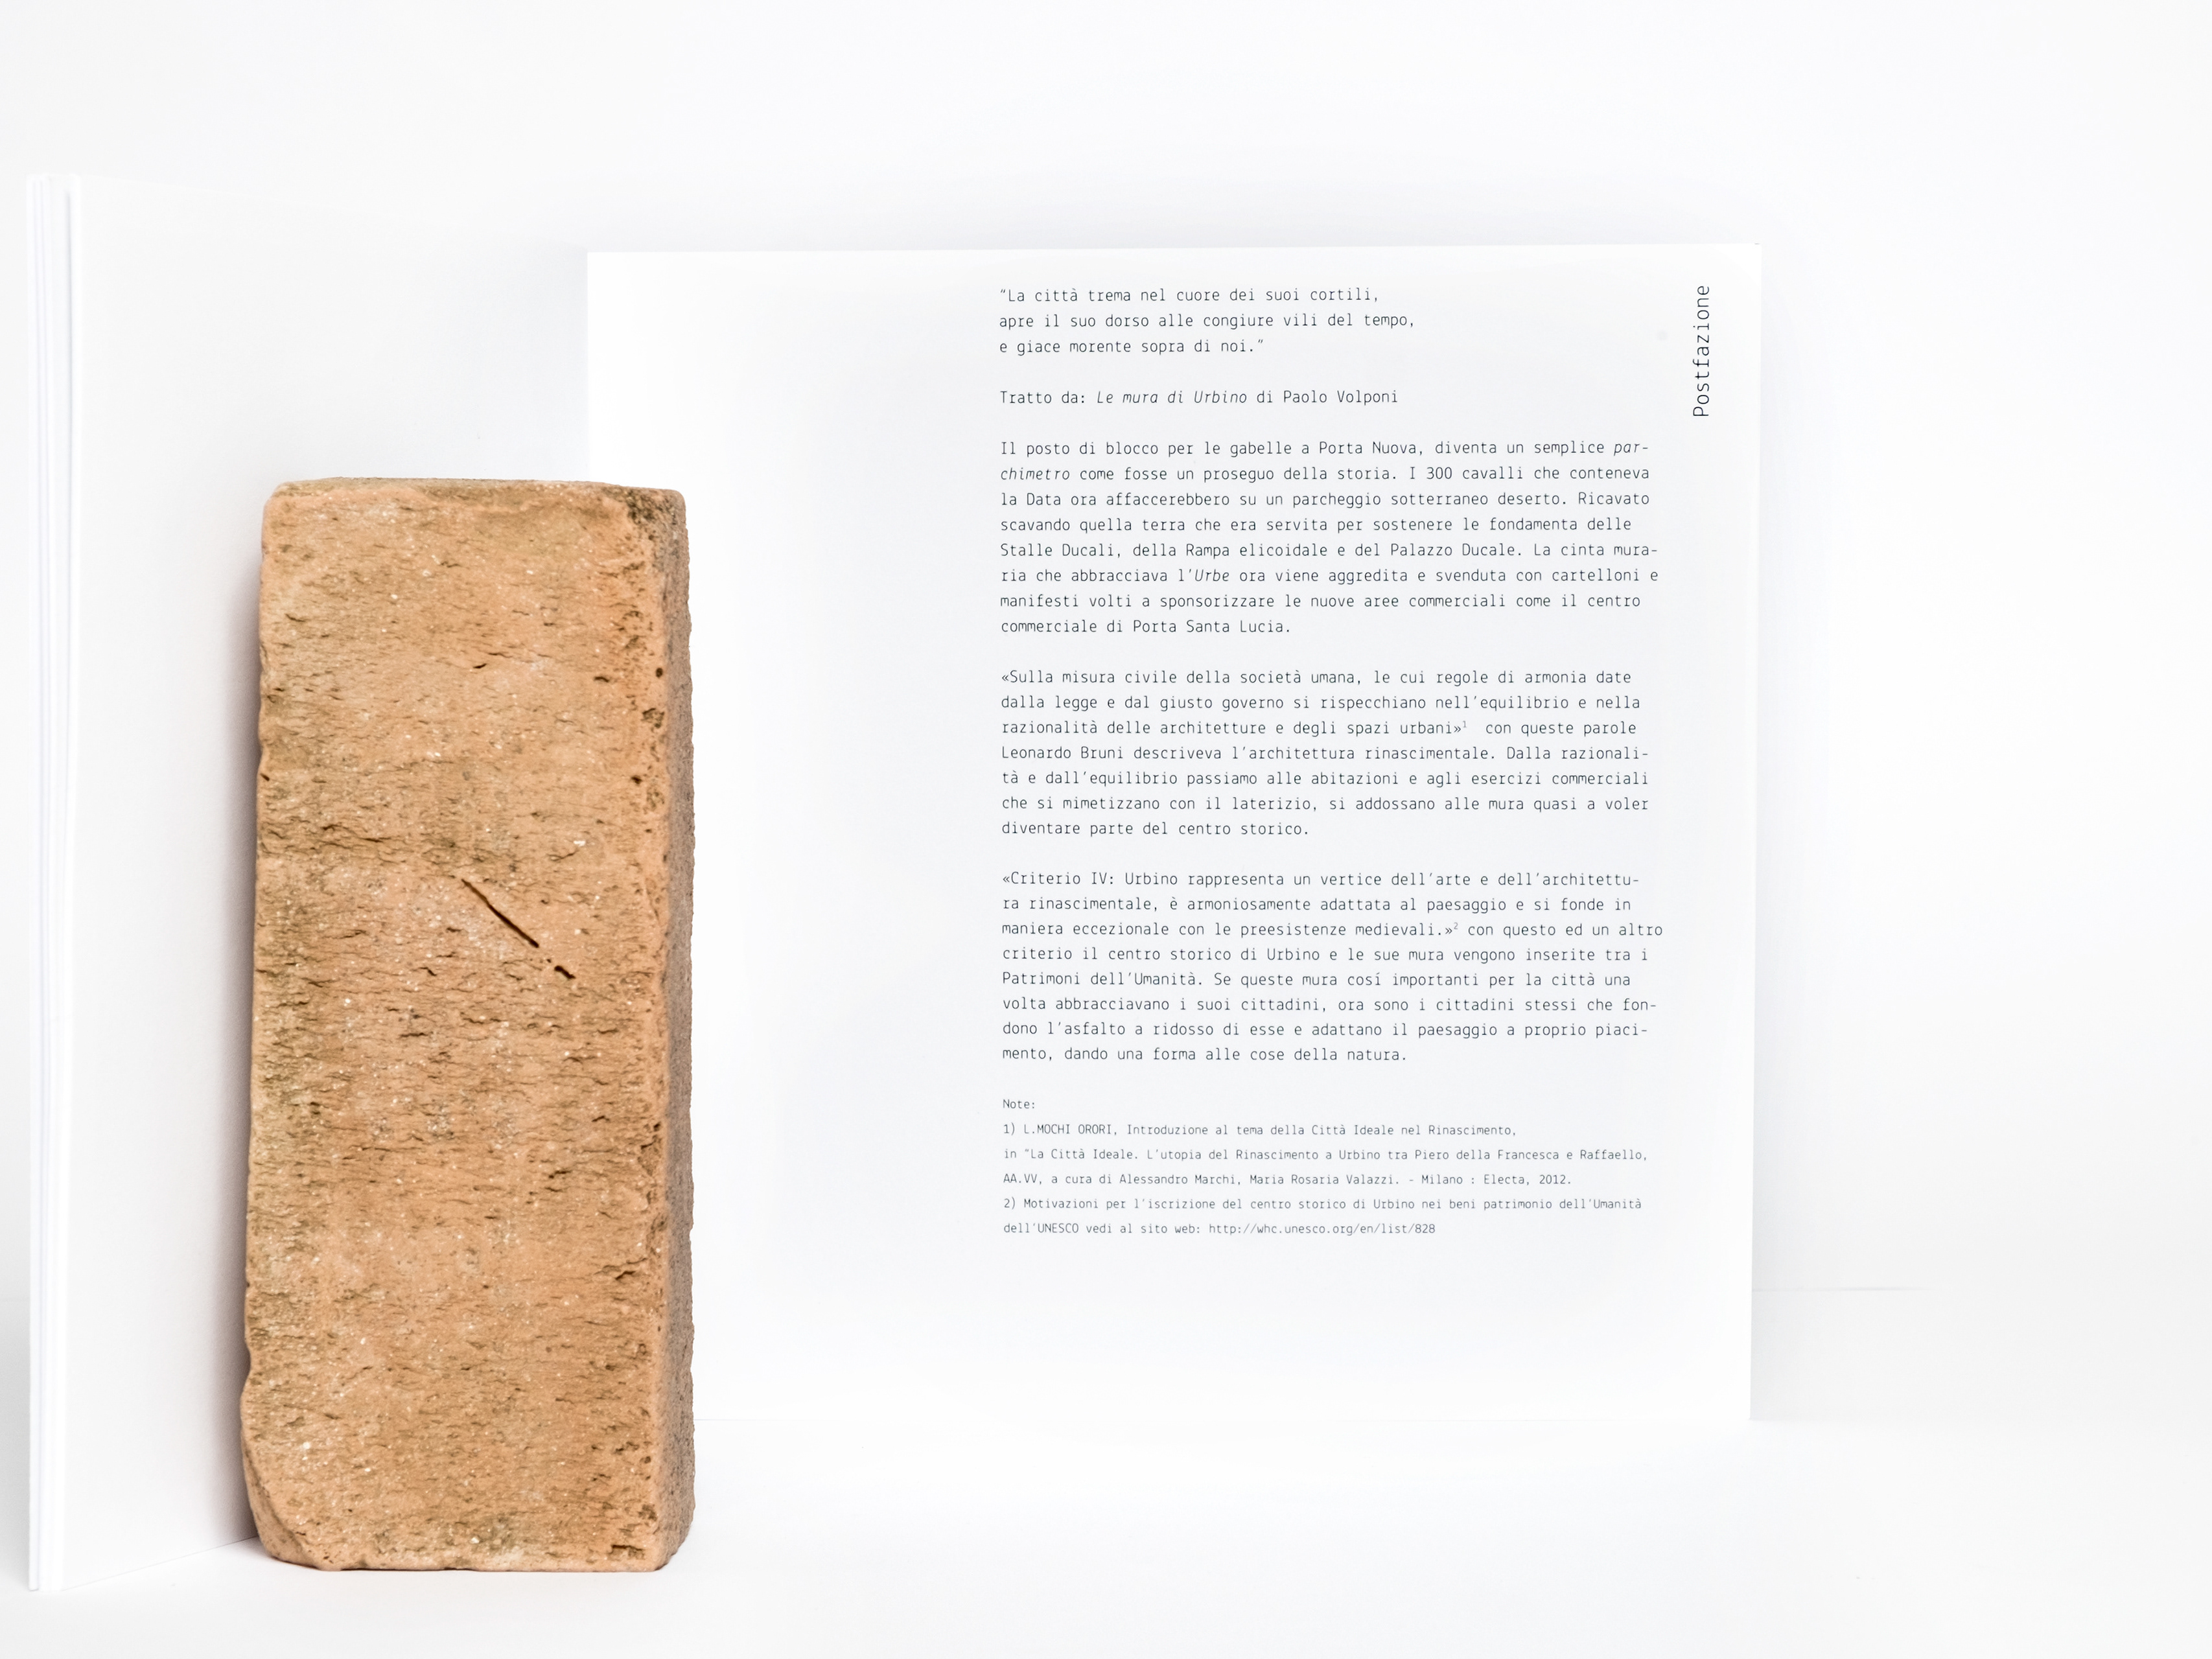 “La città trema nel cuore dei suoi cortili,
apre il suo dorso alle congiure vili del tempo,
e giace morente sopra di noi.”
Tratto da: Le mura di Urbino di Paolo Volponi
Il posto di blocco per le gabelle a Porta Nuova, diventa un semplice par-
chimetro come fosse un proseguo della storia. I 300 cavalli che conteneva
la Data ora affaccerebbero su un parcheggio sotterraneo deserto. Ricavato
scavando quella terra che era servita per sostenere le fondamenta delle
Stalle Ducali, della Rampa elicoidale e del Palazzo Ducale. La cinta mura-
ria che abbracciava l'Urbe ora viene aggredita e svenduta con cartelloni e
manifesti volti a sponsorizzare le nuove aree commerciali come il centro
commerciale di Porta Santa Lucia.
«Sulla misura civile della società umana, le cui regole di armonia date
dalla legge e dal giusto governo si rispecchiano nell'equilibrio e nella
razionalità delle architetture e degli spazi urbani»¹ con queste parole
Leonardo Bruni descriveva l'architettura rinascimentale. Dalla razionali-
tà e dall'equilibrio passiamo alle abitazioni e agli esercizi commerciali
che si mimetizzano con il laterizio, si addossano alle mura quasi a voler
diventare parte del centro storico.
«Criterio IV: Urbino rappresenta un vertice dell'arte e dell'architettu-
ra rinascimentale, è armoniosamente adattata al paesaggio e si fonde in
maniera eccezionale con le preesistenze medievali.»² con questo ed un altro
criterio il centro storico di Urbino e le sue mura vengono inserite tra i
Patrimoni dell'Umanità. Se queste mura cosí importanti per la città una
volta abbracciavano i suoi cittadini, ora sono i cittadini stessi che fon-
dono l'asfalto a ridosso di esse e adattano il paesaggio a proprio piaci-
mento, dando una forma alle cose della natura.
Note:
1) L.MOCHI ORORI, Introduzione al tema della Città Ideale nel Rinascimento,
in "La Città Ideale. L'utopia del Rinascimento a Urbino tra Piero della Francesca e Raffaello,
AA.VV, a cura di Alessandro Marchi, Maria Rosaria Valazzi. - Milano : Electa, 2012.
2) Motivazioni per l'iscrizione del centro storico di Urbino nei beni patrimonio dell'Umanità
dell'UNESCO vedi al sito web: http://whc.unesco.org/en/list/828
Postfazione